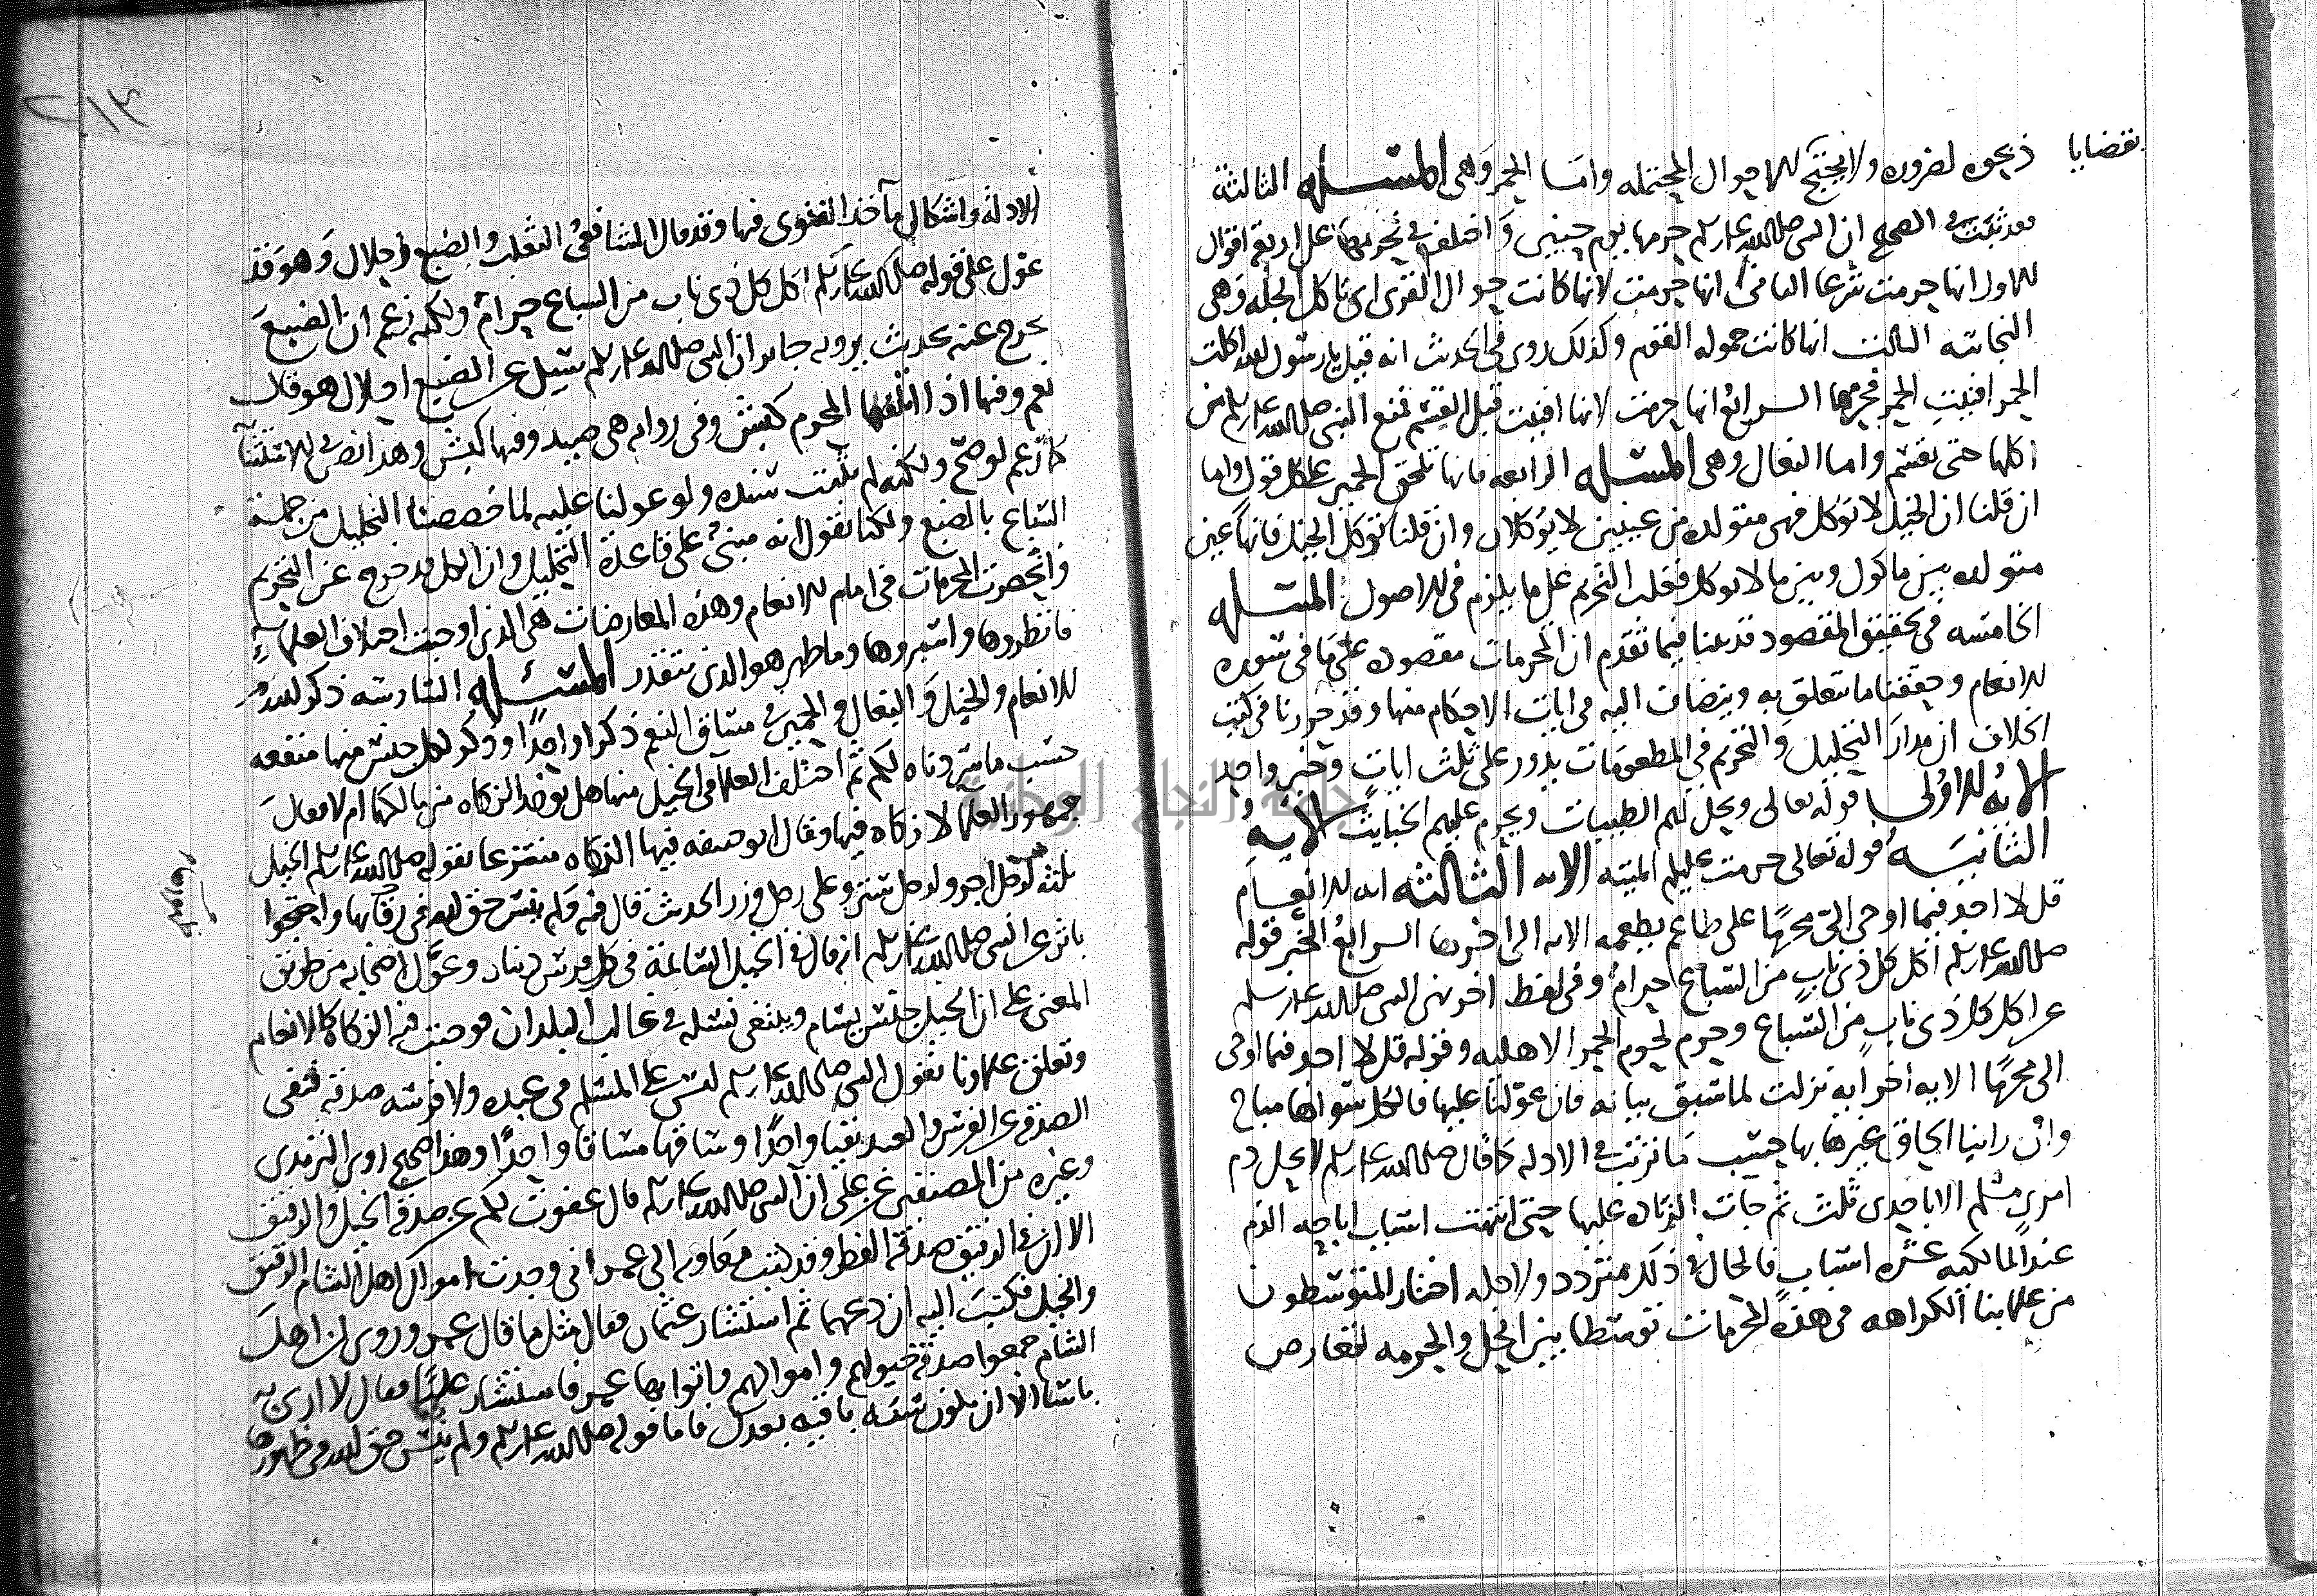 بقضايا
ذبحوه لضروره ولا يحتج للاحوال المحتمله واما الحمر وهى المسله الثالثه
فقد ثبت في الصحيح ان النبى صلى الله عليه وسلم حرمها يوم حنين واختلف في تحريمها على اربعة اقوال
الاول انها حرمت شرعا الثاني انها حرمت لانها كانت جوال القرى اى تاكل الجله وهى
النجاسه الثالث انها كانت حموله القوم وكذلك روى في الحديث انه قيل يا رسول الله اكلت
الحمر افنيت الحمر فحرمها الرابع انها حرمت لانها افنيت قبل القسم فمنع النبى صلى الله عليه وسلم من
اكلها حتى تقسم واما البغال وهى المسله الرابعه فانها تلحق الحمير على كل قول واما
ان قلنا ان الخيل لا توكل فهى متولده من عينين لا يوكلان وان قلنا توكل الخيل فانها عين
متولده بين ماكول وبين ما لا يوكل فغلب التحريم على ما يلزم في الاصول المسله
الخامسه في تحقيق المقصود قد بينا فيما تقدم ان المحرمات مقصوره على ما في سوره
الانعام وحققنا ما يتعلق به وينضاف اليه في ايات الاحكام منها وقد حررنا في كتب
الخلاف ان مدار التحليل والتحريم في المطعومات يدور على ثلث ايات وخبر واحد
الايه الاولى قوله تعالى ويحل لهم الطيبات ويحرم عليهم الخبايث الايه
الثانيه قوله تعالى حرمت عليكم الميته الايه الثالثه ايه الانعام
قل لا اجد فيما اوحى الى محرما على طاعم يطعمه الايه الى اخرها الرابع الخبر قوله
صلى الله عليه وسلم اكل كل ذى ناب من السباع حرام وفي لفظ اخر نهى النبى صلى الله عليه وسلم
عن اكل كل ذى ناب من السباع وحرم لحوم الحمر الاهليه وقوله قل لا اجد فيما اوحى
الى محرما الايه اخر ايه نزلت لما سبق بيانه فان عولنا عليها فالكل سواها مباح
وان راينا الحاق غيرها بها حسب ما ترتب في الادله كما قال صلى الله عليه وسلم لا يحل دم
امرئ مسلم الا باحدى ثلث ثم جات الزياده عليها حتى انتهت اسباب اباحه الدم
عند المالكيه عشره اسباب فالحال في ذلك متردد ولاجله اختار المتوسطون
من علماينا الكراهه في هذه المحرمات توسطا بين الحل والحرمه لتعارض
الادله واشكال ماخذ الفتوى فيها وقد قال الشافعى الثعلب والضبع حلال وهو قد
عول على قوله صلى الله عليه وسلم اكل كل ذى ناب من السباع حرام ولكنه زعم ان الضبع
يخرج عنه بحديث يرويه جابر ان النبى صلى الله عليه وسلم سيل عن الضبع احلال هو قال
نعم وفيها اذا اتلفها المحرم كبش وفي روايه هى صيد وفيها كبش وهذا نص في الاستثنا
كما زعم لو صح ولكنه لم يثبت سنده ولو عولنا عليه لما خصصنا التحليل من جملة
السباع بالضبع ولكنا نقول انه مبنى على قاعدة التحليل وان الكل قد خرج عن التحريم
وانحصرت المحرمات في الانعام وهذه المعارضات هى الذى اوجبت اختلاف العلماء
فانظروها واسبروها وما ظهر هو الذى يتقدر المسئله السادسه ذكر الله
الانعام والخيل والبغال والحمير في مساق النعم ذكرا واحدا وذكر لكل جنس منها منفعه
حسب ما سردناه لكم ثم اختلف العلما في الخيل منها هل توخذ الزكاه من مالكها ام لا فقال
جمهور العلما لا زكاه فيها وقال ابو حنيفه فيها الزكاه منتزعا بقوله صلى الله عليه وسلم الخيل
ثلثه لرجل اجر ولرجل ستر وعلى رجل وزر الحديث قال فيه ولم ينس حق الله في رقابها واحتجوا
باثر عن النبى صلى الله عليه وسلم انه قال في الخيل السائمة في كل فرس دينار وعول اصحابه من طريق
المعنى على ان الخيل جنس يسام ويبتغى نسله في غالب البلدان فوجبت فيه الزكاه كالانعام
وتعلق علماونا بقول النبى صلى الله عليه وسلم ليس على المسلم في عبده ولا فرسه صدقه فنفى
الصدقه عن الفرس والعبد نفيا واحدا وساقها مساقا واحدا وهذا صحيح روى الترمذى
وغيره من المصنفين عن على ان النبى صلى الله عليه وسلم قال عفوت لكم عن صدقه الخيل والرقيق
الا ان في الرقيق صدقه الفطر وقد كتب معاويه الى عمر انى وجدت اموال اهل الشام الرقيق
والخيل فكتب اليه ان دعهما ثم استشار عثمان فقال مثل ما قال عمر وروى ان اهل
الشام جمعوا صدقه خيولهم واموالهم واتوا بها عمر فاستشار عليا فقال لا ارى به
باسا الا ان تكون سنه باقيه بعدك فاما قوله صلى الله عليه وسلم ولم ينس حق الله في ظهورها